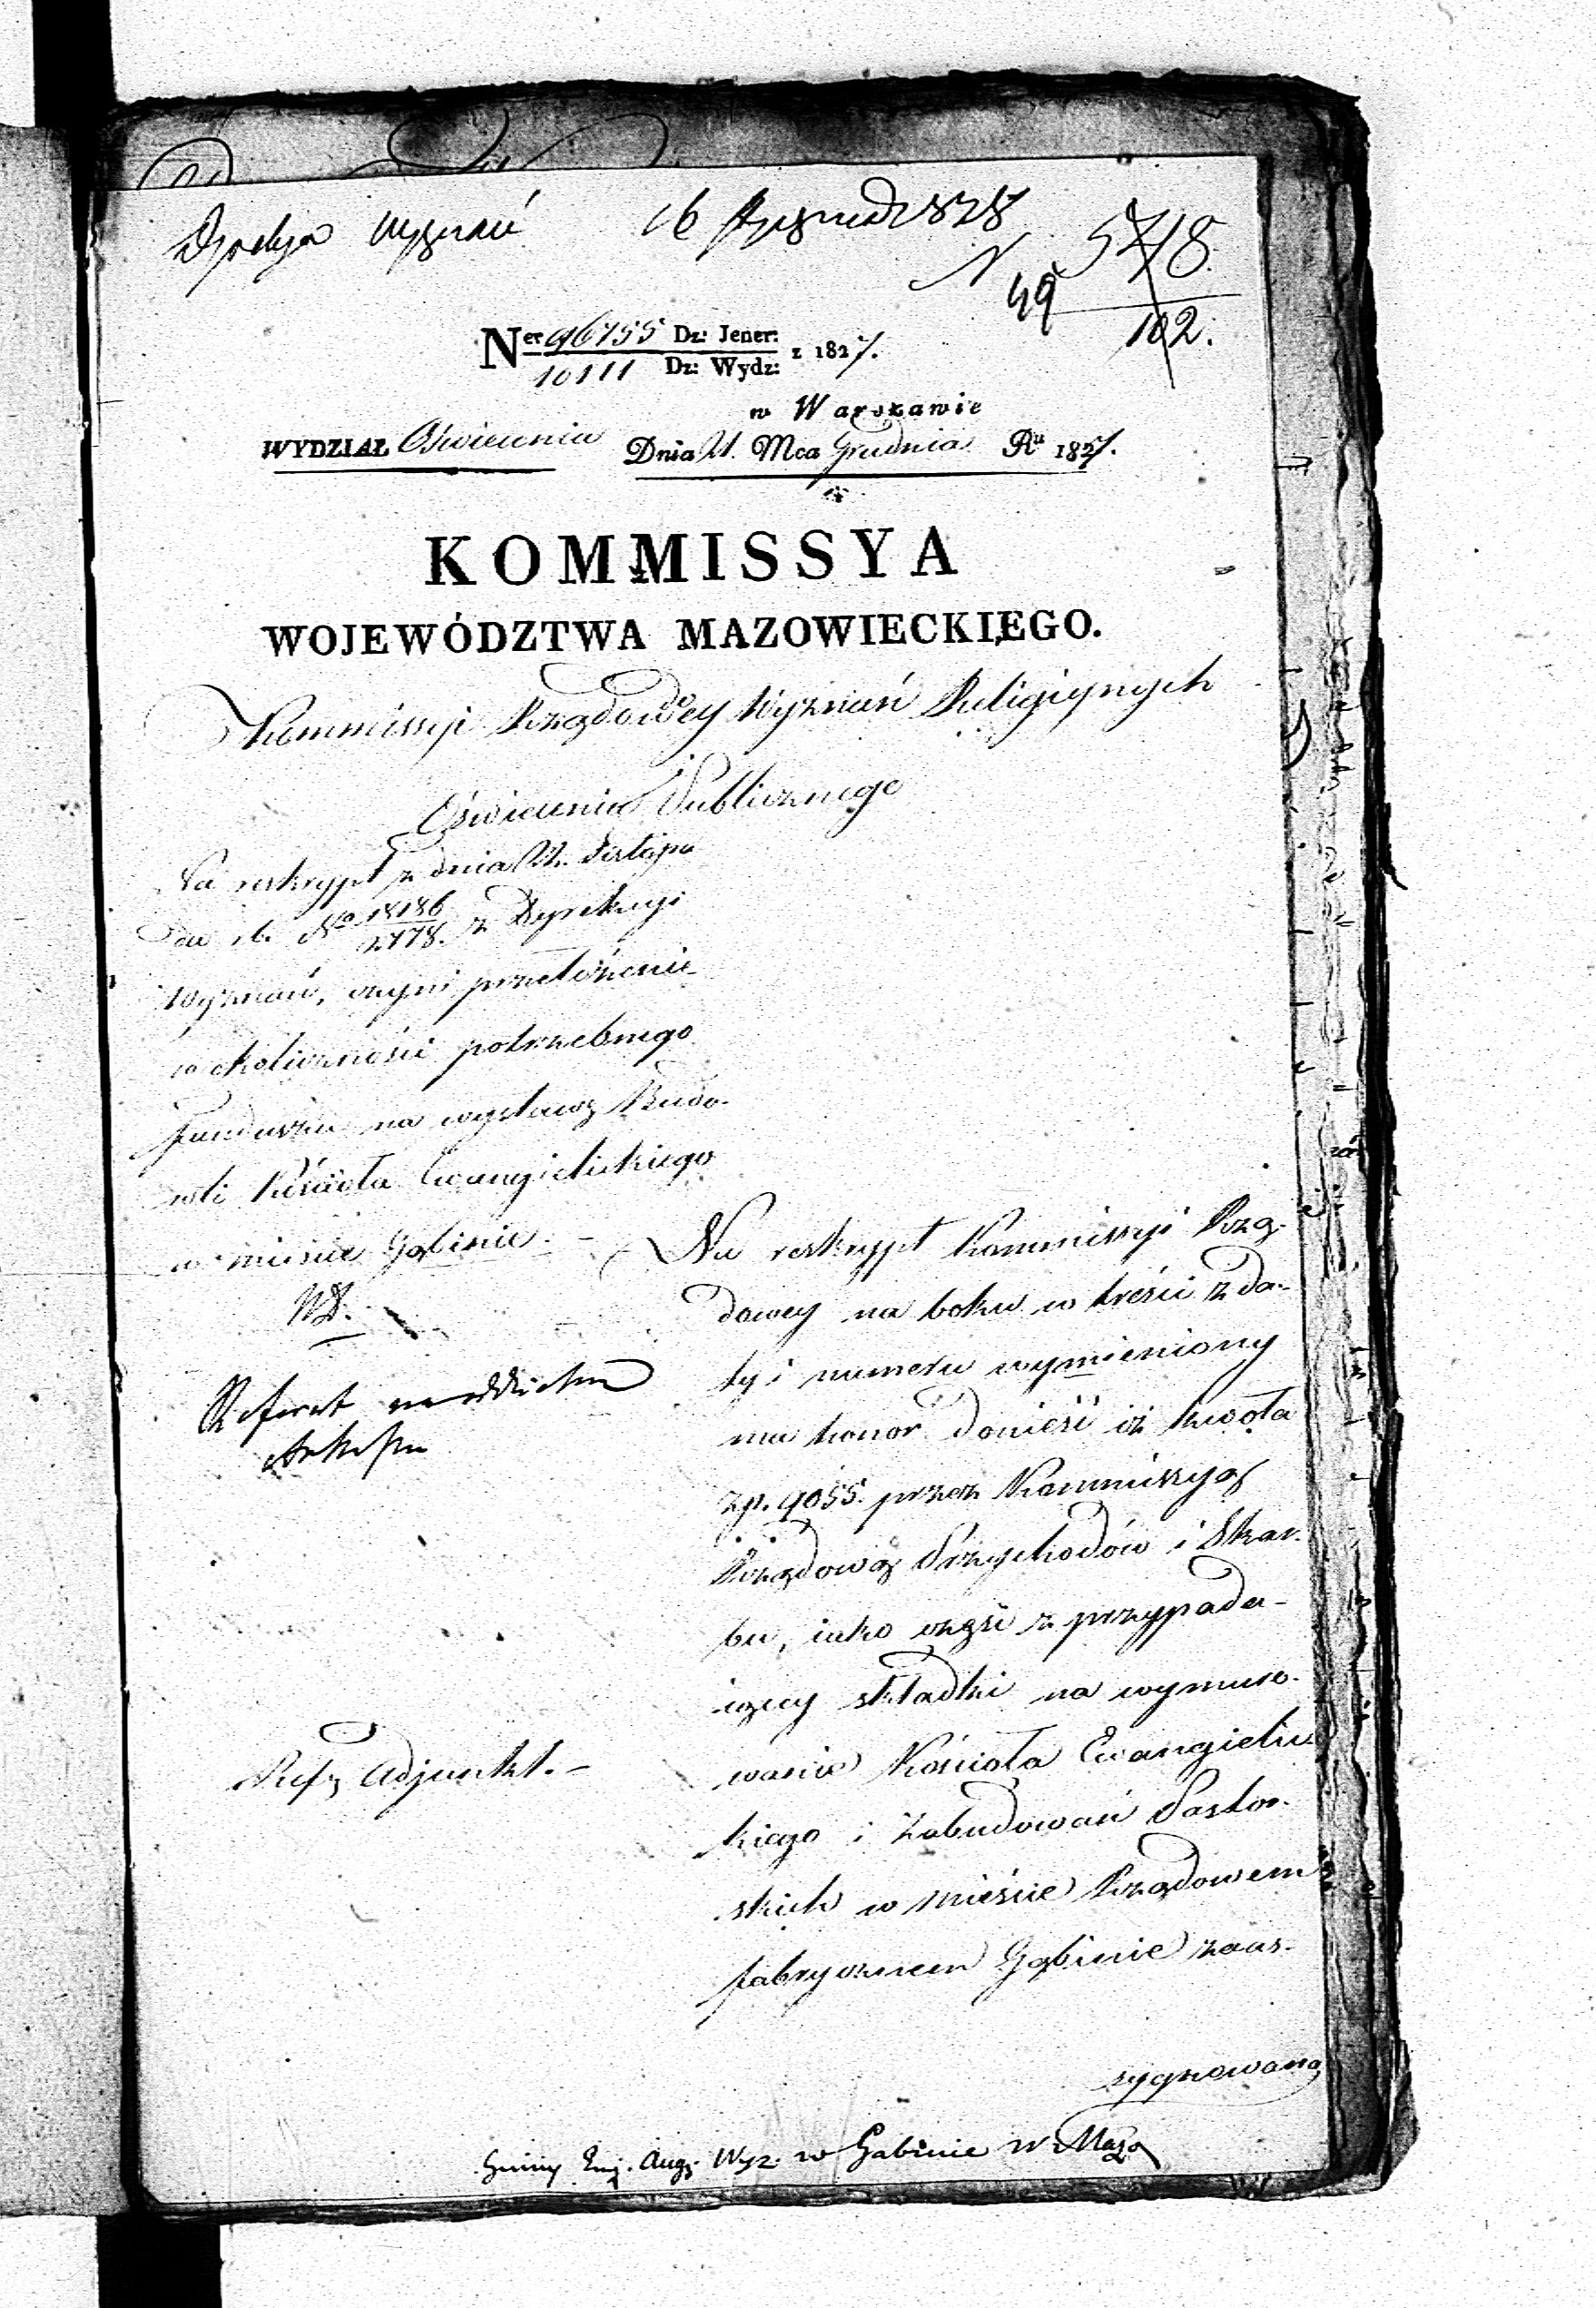 Dyrekcya Wyznań 16 Stycznia 1828
N 5718.
49 102.
Ner 96755 Dz: Jener: z 1827.
10111 Dz: Wydz:
w Warszawie
WYDZIAŁ Oświecenia Dnia 21. Mca Grudnia Ru 1827.
KOMMISSYA
WOJEWÓDZTWA MAZOWIECKIEGO.
Kommissyi Rządowey Wyznań Religiynych
i
Oświecenia Publicznego
Na reskrypt z dnia 22. Listopa
da rb. No 18186 z Dyrekcyi
2778.
Wyznań, czyni przełożenie
w okoliczności potrzebnego
funduszu na wystawę Budo-
wli Kościoła Ewangielickiego
w mieście Gąbinie. -
Na reskrypt Kommissyi Rzą-
dowey na boku w treści z da-
ty i numeru wymieniony
ma honor donieść iż kwota
zp. 9055. przez Kommissyą
Rządową Przychodów i Skar-
bu, iako część z przypada-
iącey składki na wymuro-
wanie Kościoła Ewangielic
kiego i Zabudowań Pastor-
skich w mieście Rządowem
fabrycznem Gąbinie zaas-
sygnowana
Referat na oddzielnem
Arkuszu
Adjunkt. -
Gminy Ewj. Augs. Wyz. w Gąbinie W. Mazo